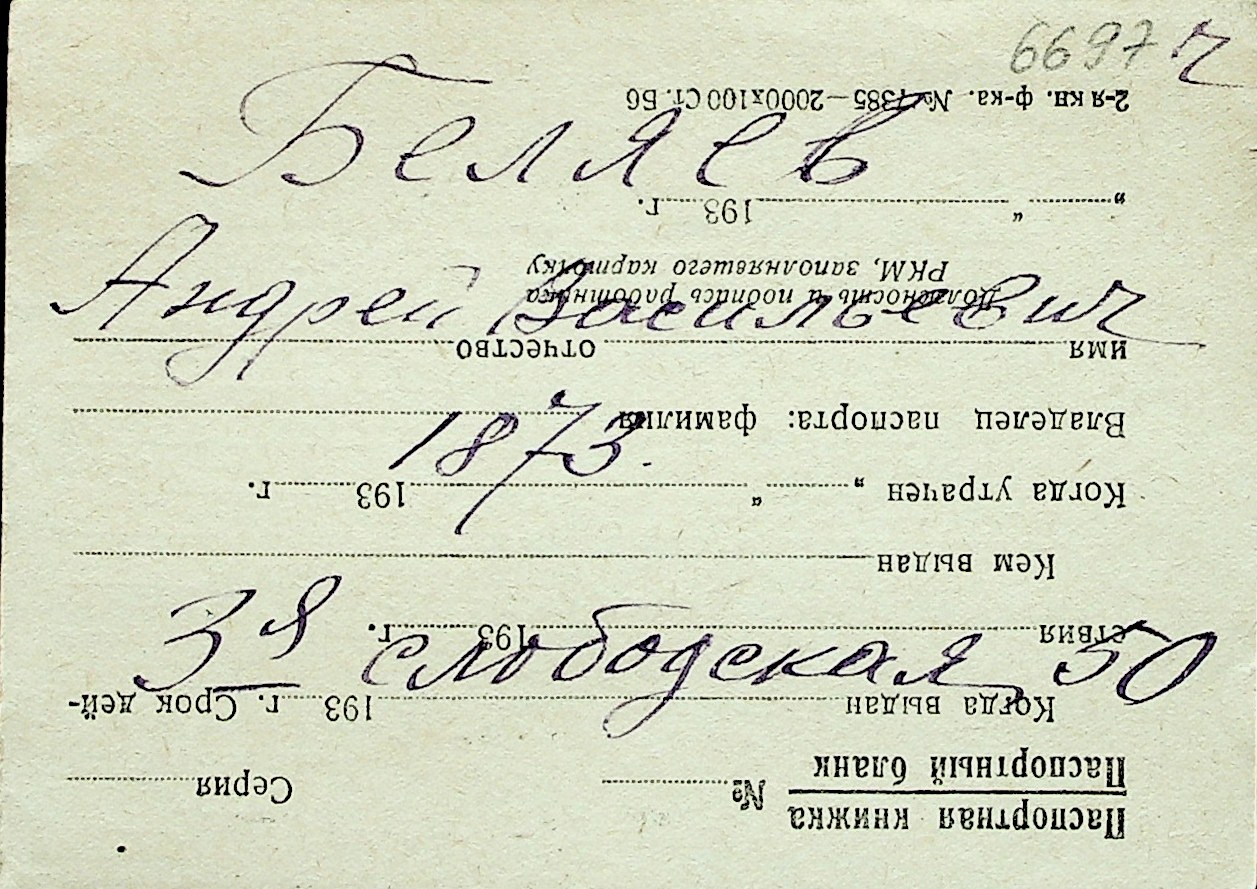 6697 ч
Беляев
Андрей Васильевич
1873
3я слободская 50
Паспортная книжка
Паспортный бланк
№ Серия
Когда выдан 193 г. Срок дей-
ствия 193 г.
Кем выдан
Когда утрачен „ “ 193 г.
Владелец паспорта: фамилия
имя отчество
Должность и подпись работника
РКМ, заполнявшего карточку
„ “ 193 г.
2-я кн. ф-ка. 2000х100 Ст. Б6